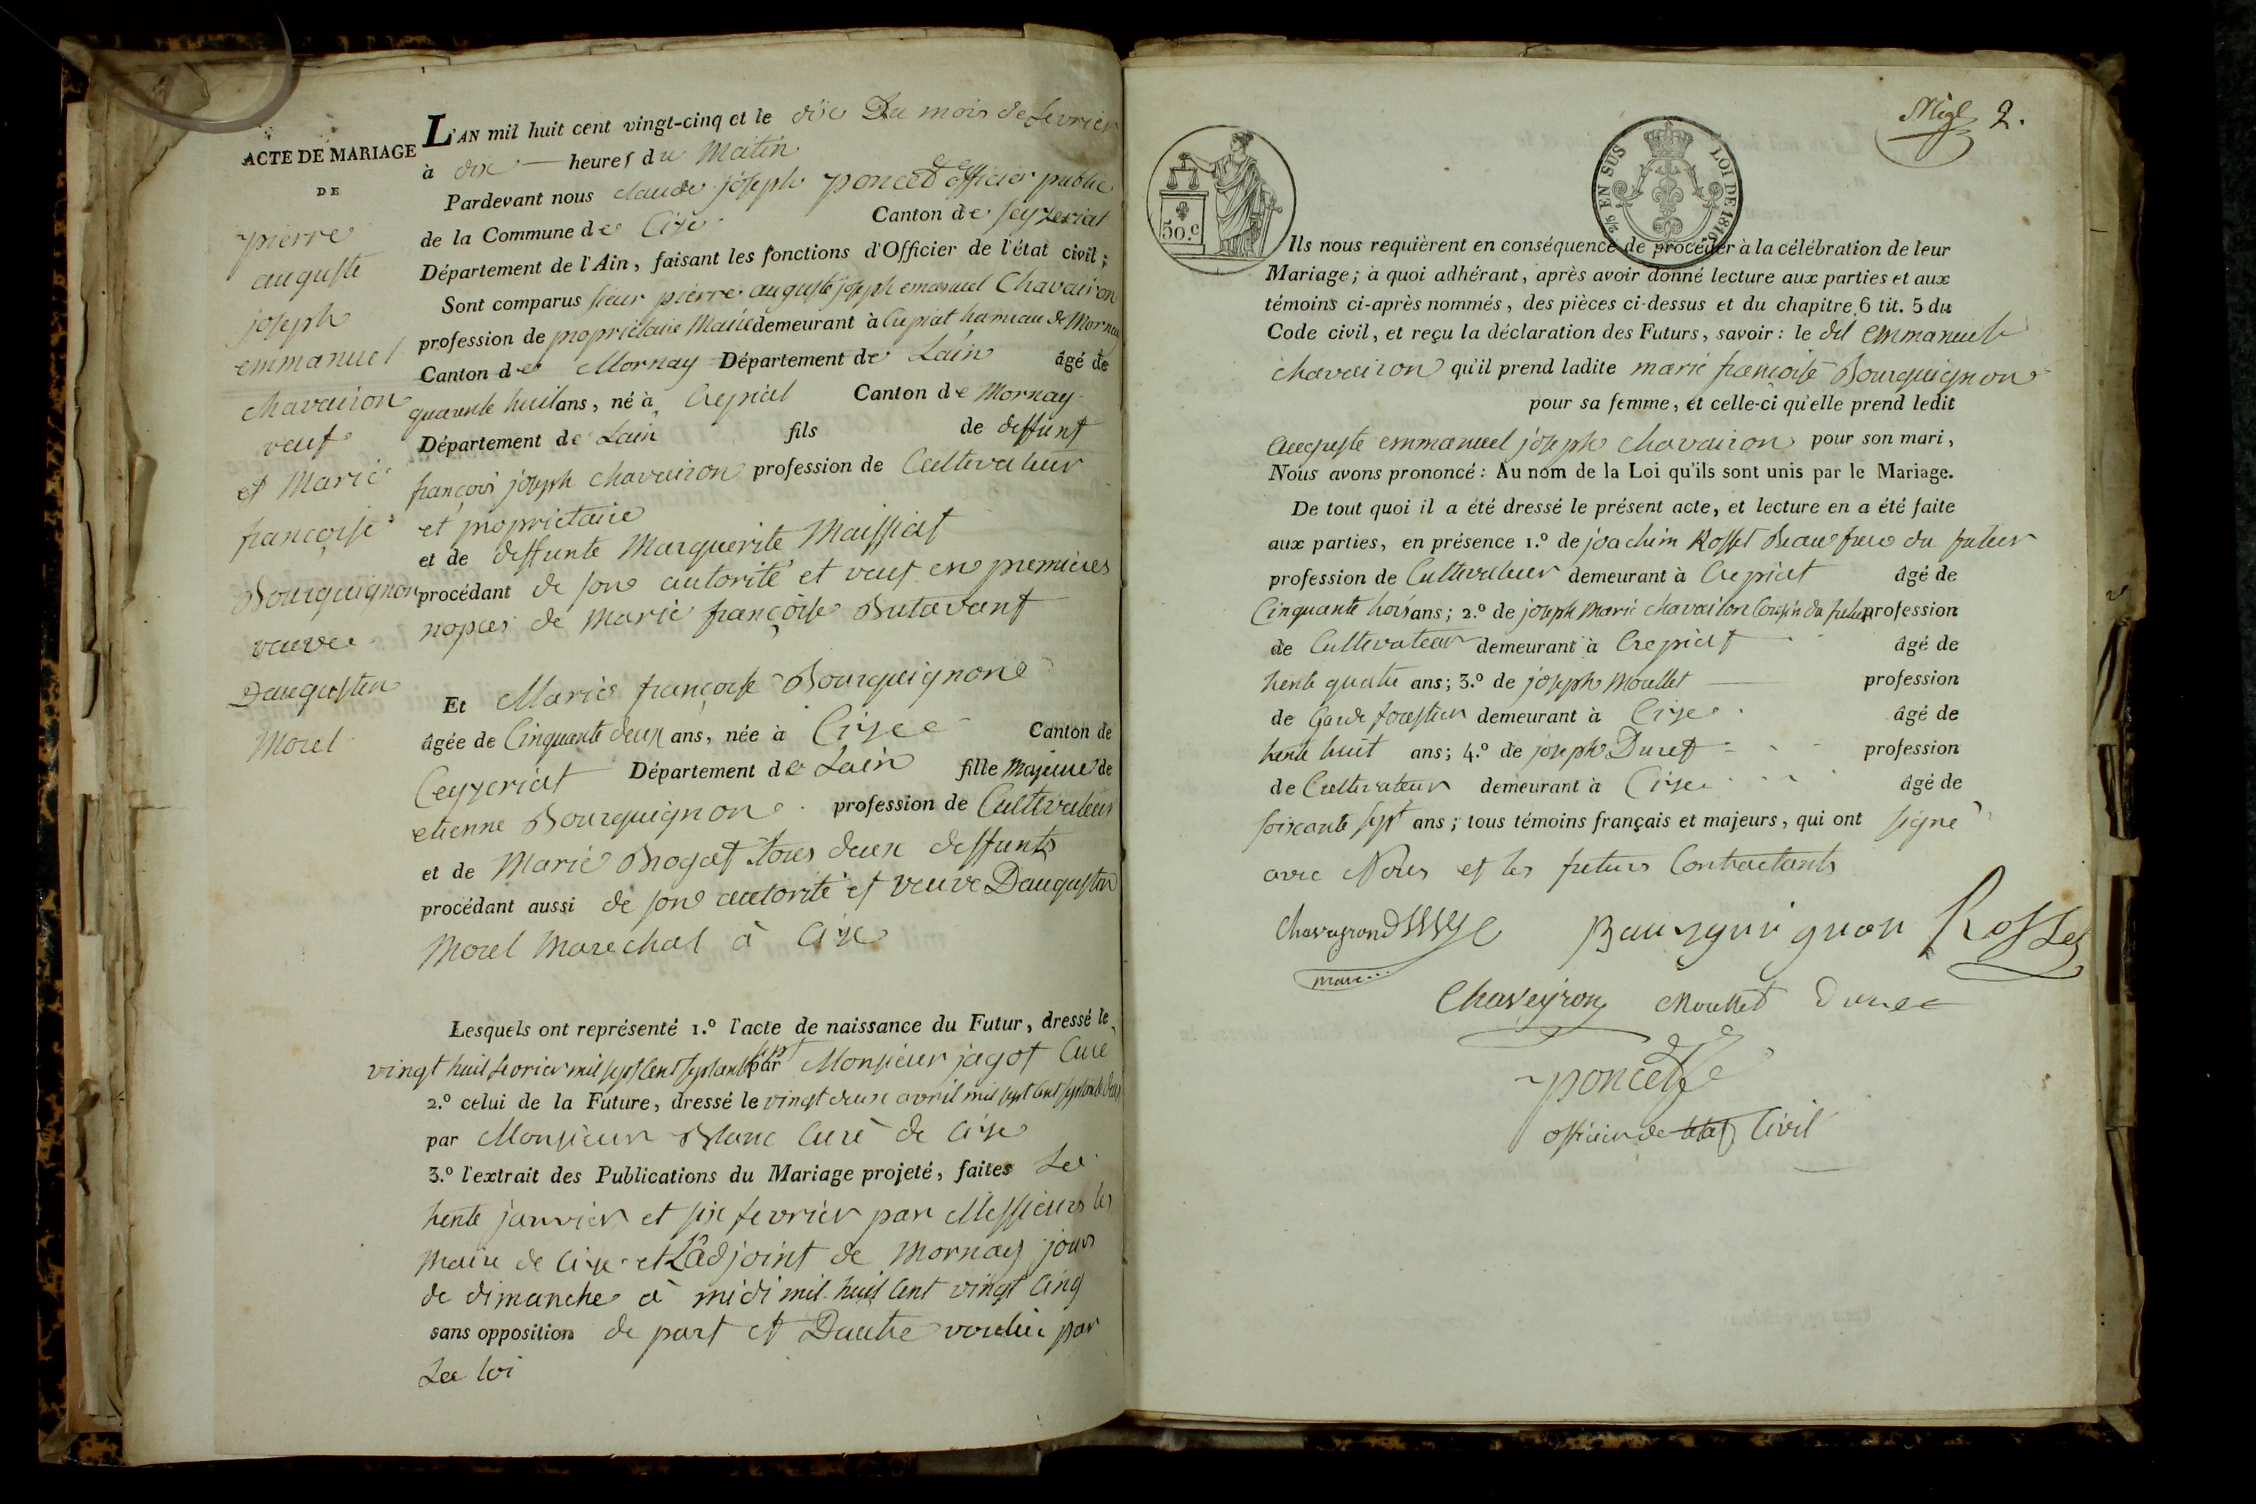 ACTE DE MARIAGE
DE
pierre
auguste
joseph
emmanuel
chavairon
veuf
et Marie
françoise
Bourguignon
veuve
Daugustin
Morel
L'AN mil huit cent vingt-cinq et le dix Du mois de fevrier
à dix heures du Matin
Pardevant nous claude joseph poncet officier public
de la Commune de Cize Canton de seyzeriat
Département de l'Ain, faisant les fonctions d'Officier de l'état civil;
Sont comparus sieur pierre auguste joseph emanuel Chavairon
profession de propriétaire Maire demeurant à Crepiat hameau de Mornay
Canton de Mornay Département de Lain âgé de
quarente huit ans, né à Crepiat Canton de Mornay
Département de Lain fils de deffunt
françois joseph chavairon profession de Cultivateur
et proprietaire
et de deffunte Marguerite Maissiat
procédant de son autorité et veuf en premieres
nopces de Marie françoise Butavant
Et Marie françoise Bourguignon
âgée de Cinquante deux ans, née à Cize Canton de
Ceyzeriat Département de Lain fille Majeure de
etienne Bourguignon profession de Cultivateur
et de Marie Brogat tous deux deffunts
procédant aussi de son autorité et veuve Daugustin
Morel Marechal à Cize
Lesquels ont représenté 1.º l'acte de naissance du Futur, dressé le
vingt huit fevrier mil sept Cent septante sept par Monsieur jagot Curé
2.º celui de la Future, dressé le vingt deux avril mil sept Cent septante deux
par Monsieur Blanc Curé de Cize
3.º l'extrait des Publications du Mariage projeté, faites Le
trente janvier et six fevrier par Messieurs les
Maire de Cize et Ladjoint de Mornay jours
de dimanche à midi mil huit Cent vingt Cinq
sans opposition de part et Dautre voulue par
La loi
2.
50.c
EN SUS
LOI DE 1816
Ils nous requièrent en conséquence de procéder à la célébration de leur
Mariage; à quoi adhérant, après avoir donné lecture aux parties et aux
témoins ci-après nommés, des pièces ci-dessus et du chapitre 6 tit. 5 du
Code civil, et reçu la déclaration des Futurs, savoir: le dit emmanuel
chavairon qu'il prend ladite marie françoise Bourguignon
pour sa femme, et celle-ci qu'elle prend ledit
auguste emmanuel joseph chavairon pour son mari,
Nous avons prononcé: Au nom de la Loi qu'ils sont unis par le Mariage.
De tout quoi il a été dressé le présent acte, et lecture en a été faite
aux parties, en présence 1.º de joachim Rosset Beau frere du futur
profession de Cultivateur demeurant à Crepiat âgé de
Cinquante trois ans; 2.º de joseph Marie chavairon Cousin du futur profession
de Cultivateur demeurant à Crepiat âgé de
trente quatre ans; 3.º de joseph Moullet profession
de Garde forestier demeurant à Cize âgé de
trente huit ans; 4.º de joseph Duret profession
de Cultivateur demeurant à Cize âgé de
soixante sept ans; tous témoins français et majeurs, qui ont signé
avec Nous et les futurs Contractants
Bourguignon Rosset
Chaveyron Moullet Duret
poncet
officier de letat Civil